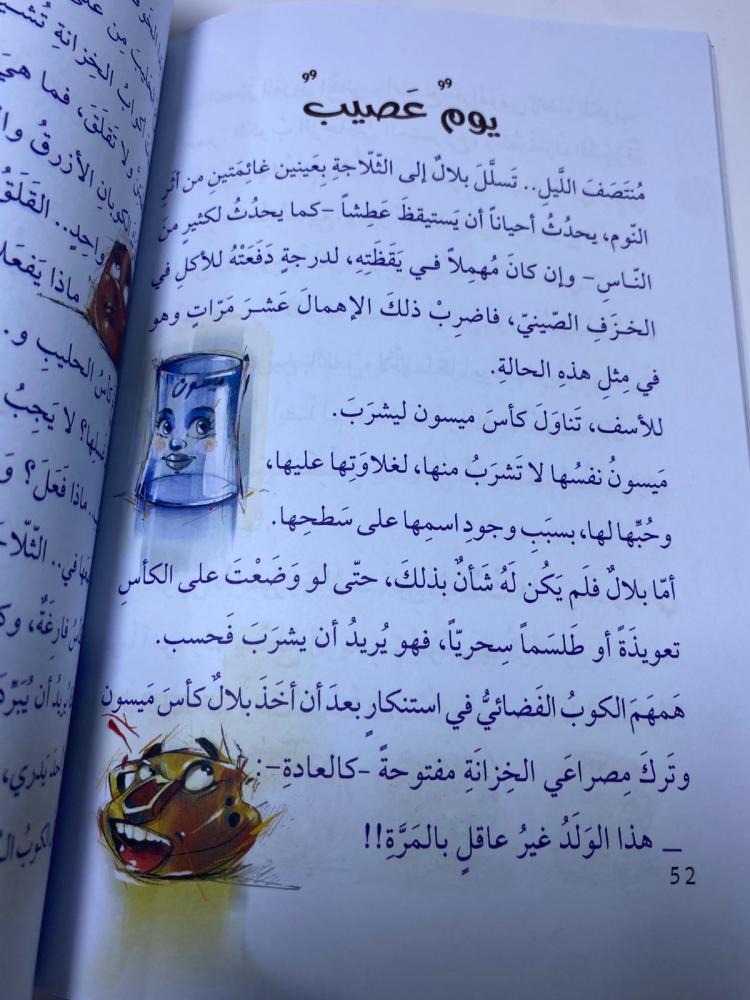 يومٌ عَصيبٌ
مُنتَصَفَ اللَّيلِ.. تَسلَّلَ بلالٌ إلى الثّلاجةِ بِعَينين غائِمَتينِ من أثرِ
النّوم، يحدُثُ أحياناً أن يَستيقظَ عَطِشاً -كما يحدُثُ لكثيرٍ منَ
النّاسِ- وإن كانَ مُهمِلاً في يَقَظَتِهِ، لدرجةٍ دَفَعَتْهُ للأكلِ في
الخزَفِ الصّينيّ، فاضرِبْ ذلكَ الإهمالَ عَشرَ مَرّاتٍ وهو
في مِثلِ هذهِ الحالةِ.
للأسف، تَناوَلَ كأسَ ميسون ليشرَبَ.
مَيسونُ نفسُها لا تَشرَبُ منها، لغلاوَتِها عليها،
وحُبِّها لها، بسبَبِ وجودِ اسمِها على سَطحِها.
أمّا بلالٌ فلَم يَكُن لَهُ شَأنٌ بذلكَ، حتّى لو وَضَعْتَ على الكأسِ
تعويذَةً أو طَلسَماً سِحريّاً، فهو يُريدُ أن يشرَبَ فَحسب.
هَمهَمَ الكوبُ الفَضائيُّ في استنكارٍ بعدَ أن أخَذَ بلالٌ كأسَ مَيسون
وتَركَ مِصراعَي الخِزانَةِ مفتوحةً -كالعادةِ-:
_ هذا الوَلَدُ غيرُ عاقلٍ بالمَرَّةِ!!
52
ميسون